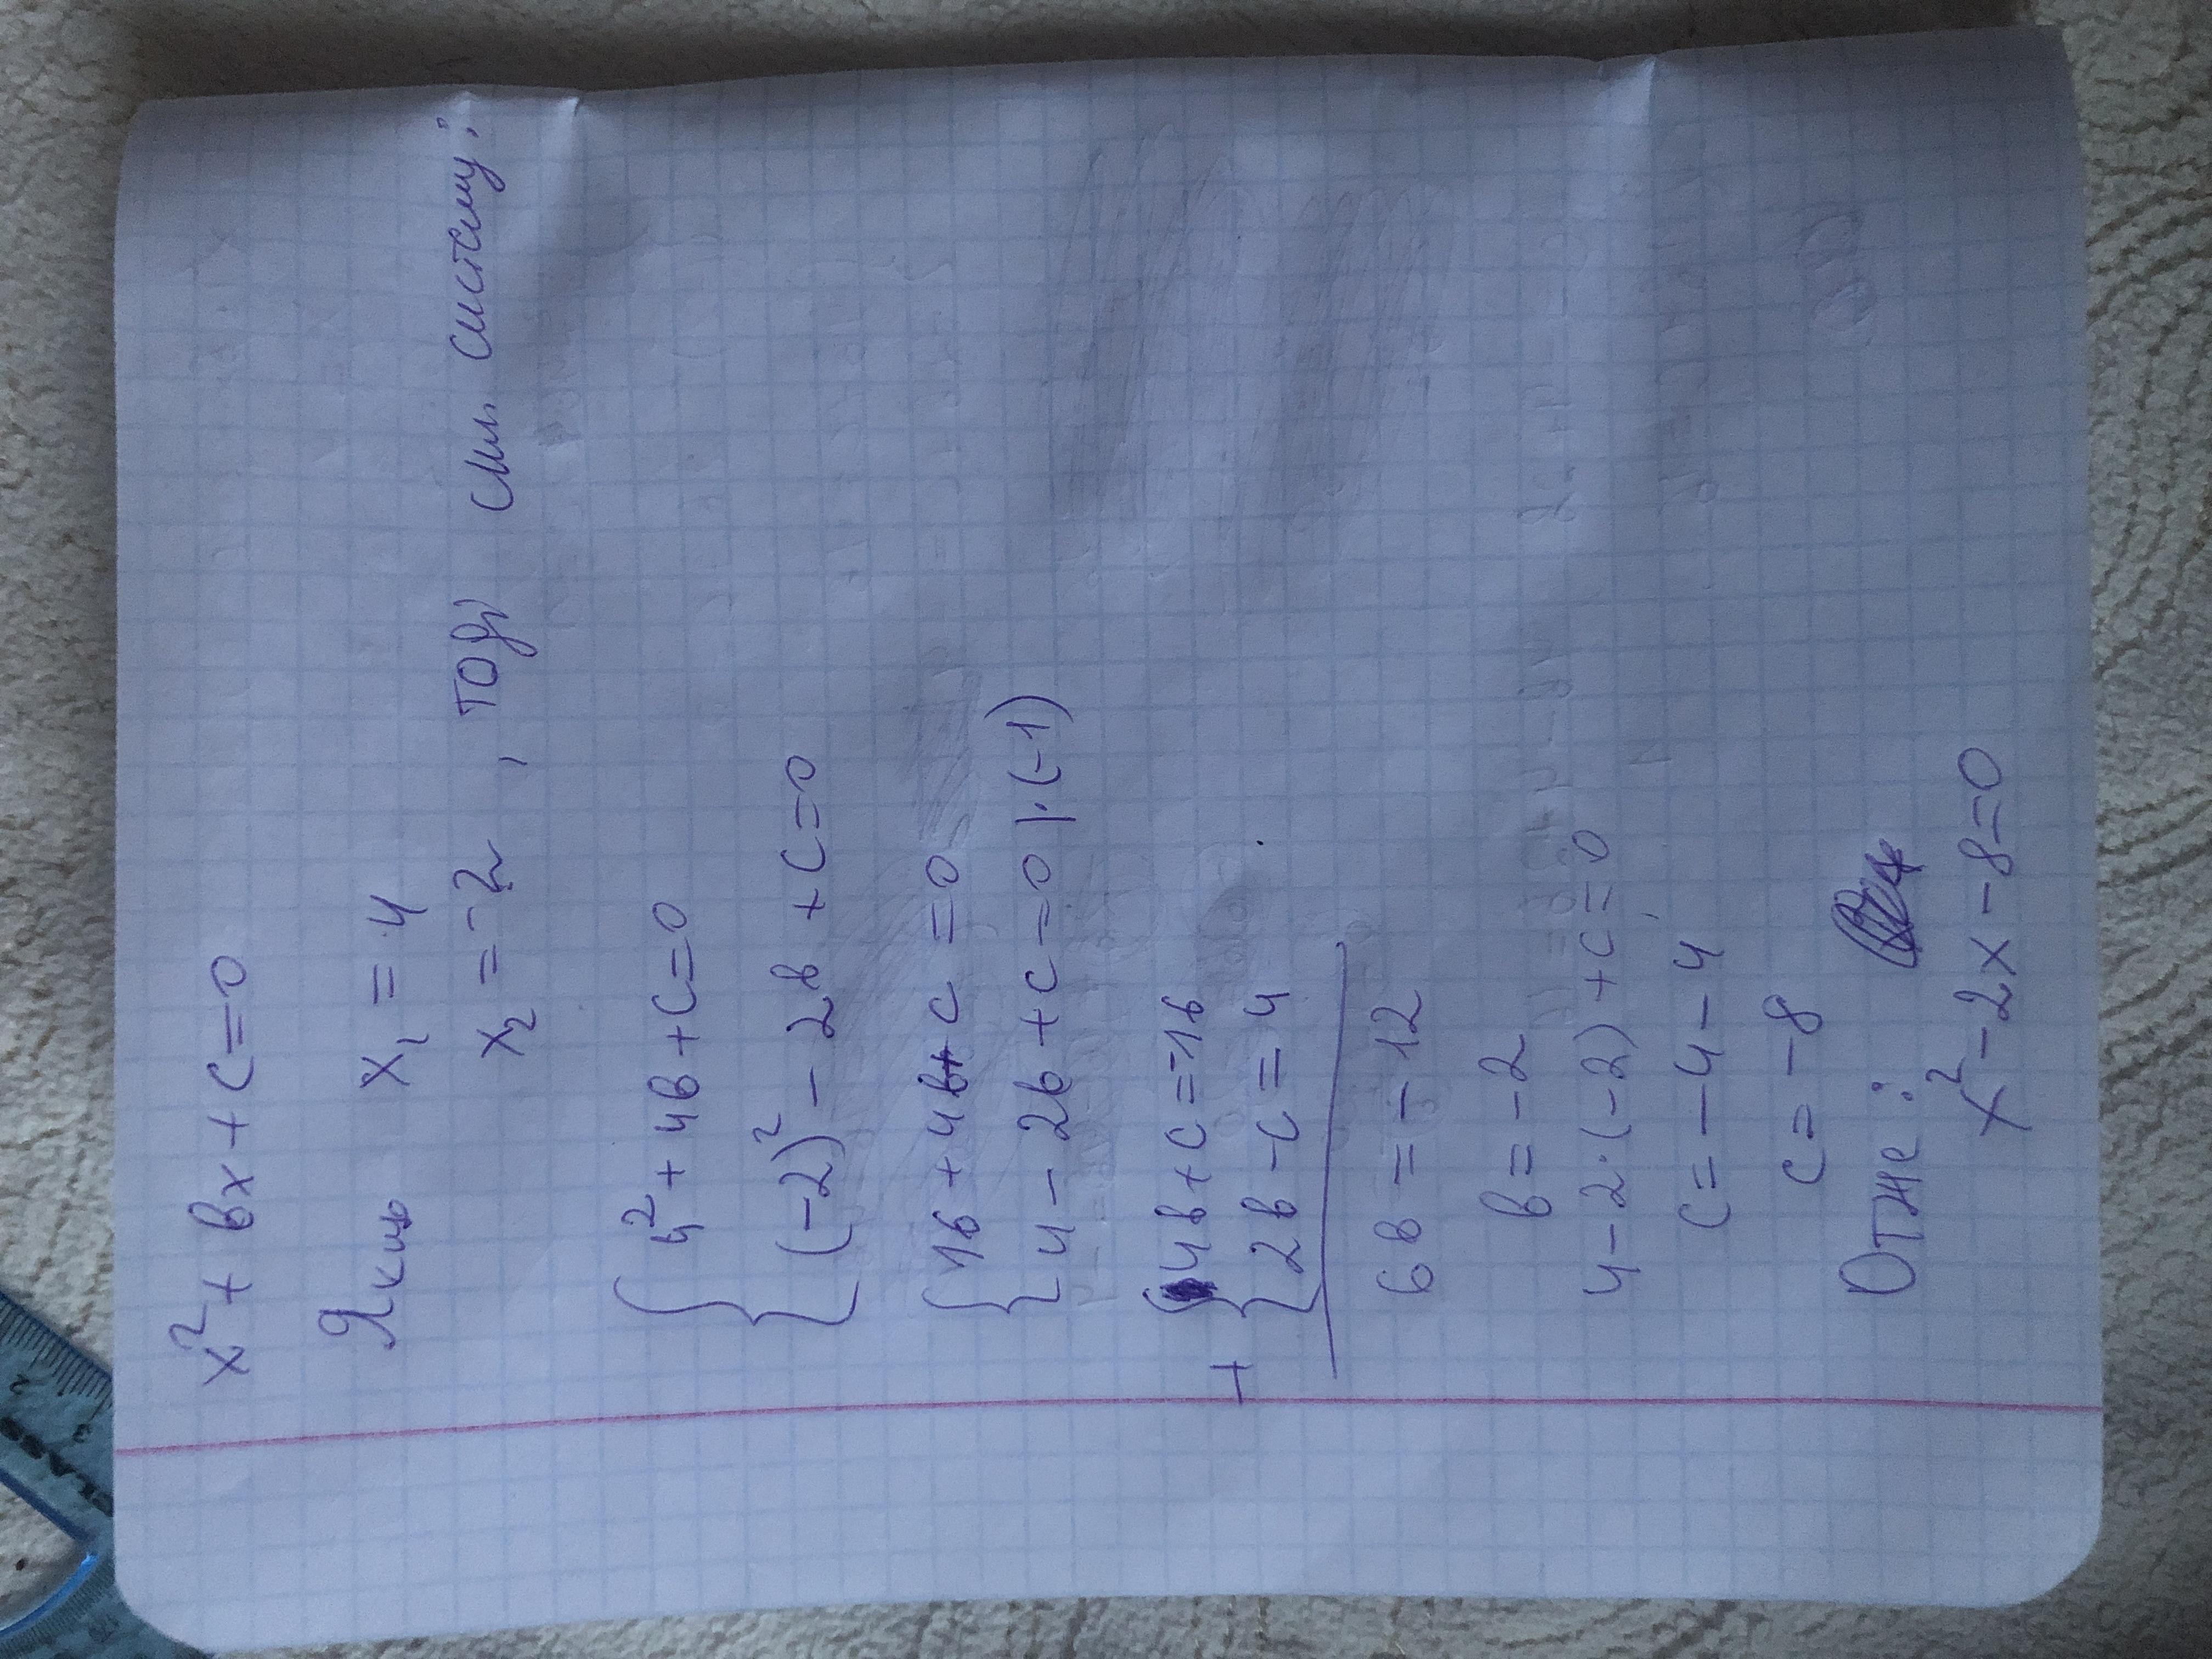 x² + bx + c = 0
Якщо x₁ = 4
x₂ = -2, тоді см. систему:
{ 4² + 4b + c = 0
{ (-2)² - 2b + c = 0
{ 16 + 4b + c = 0
{ 4 - 2b + c = 0 | · (-1)
+ { 4b + c = -16
{ 2b - c = 4
6b = -12
b = -2
4 - 2 · (-2) + c = 0
c = -4 - 4
c = -8
Отже:
x² - 2x - 8 = 0